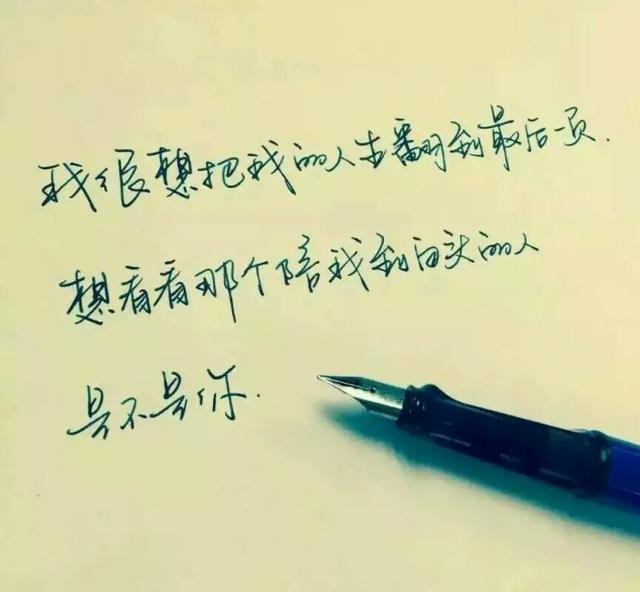 我很想把我的人生翻到最后一页.
想看看那个陪我到白头的人
是不是你.